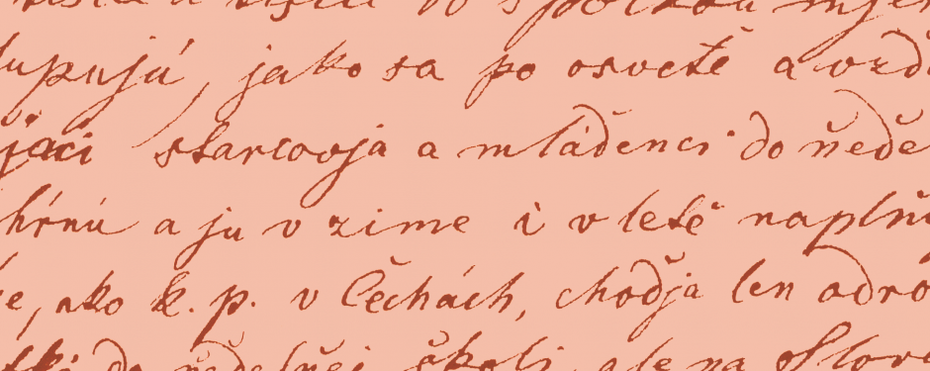 lupujú, jako sa po osveťě a vzď
jací starcovja a mláďenci do ňeďe
hŕnú a ju v zime i v leťě naplňu
e, ako k. p. v Čechách, choďja len odro
do ňeďelňej školi, ale na Slove